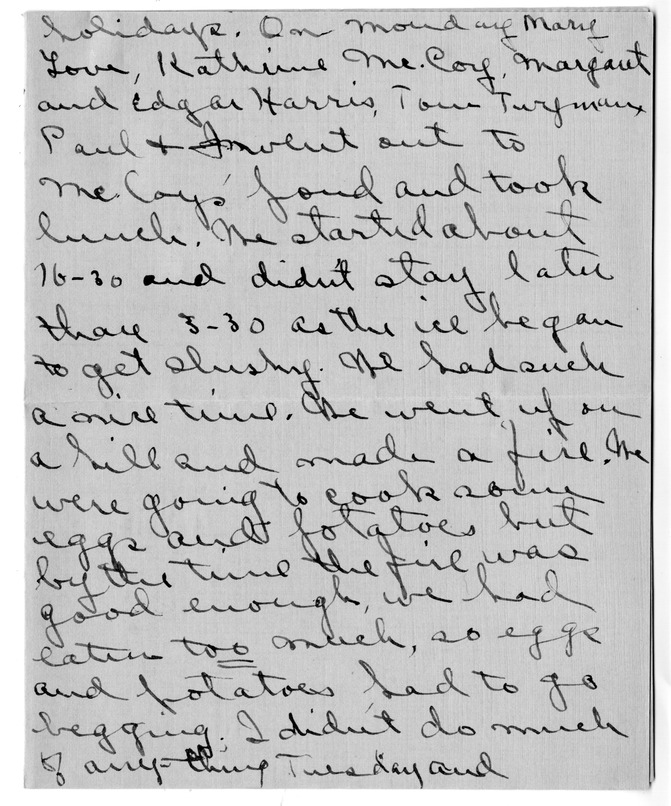 holidays. On monday Mary
Love, Kathrine Mc.Coy, Margaret
and Edgar Harris, Tom
Paul & I went out to
Mc.Coys' pond and took
lunch. We started about
10-30 and didn't stay later
than 3-30 as the ice began
to get slushy. We had such
a nice time. We went up on
a hill and made a fire. We
were going to cook some
eggs and potatoes but
by the time the fire was
good enough, we had
eaten too much, so eggs
and potatoes had to go
begging. I didn't do much
of any-thing Tuesday and